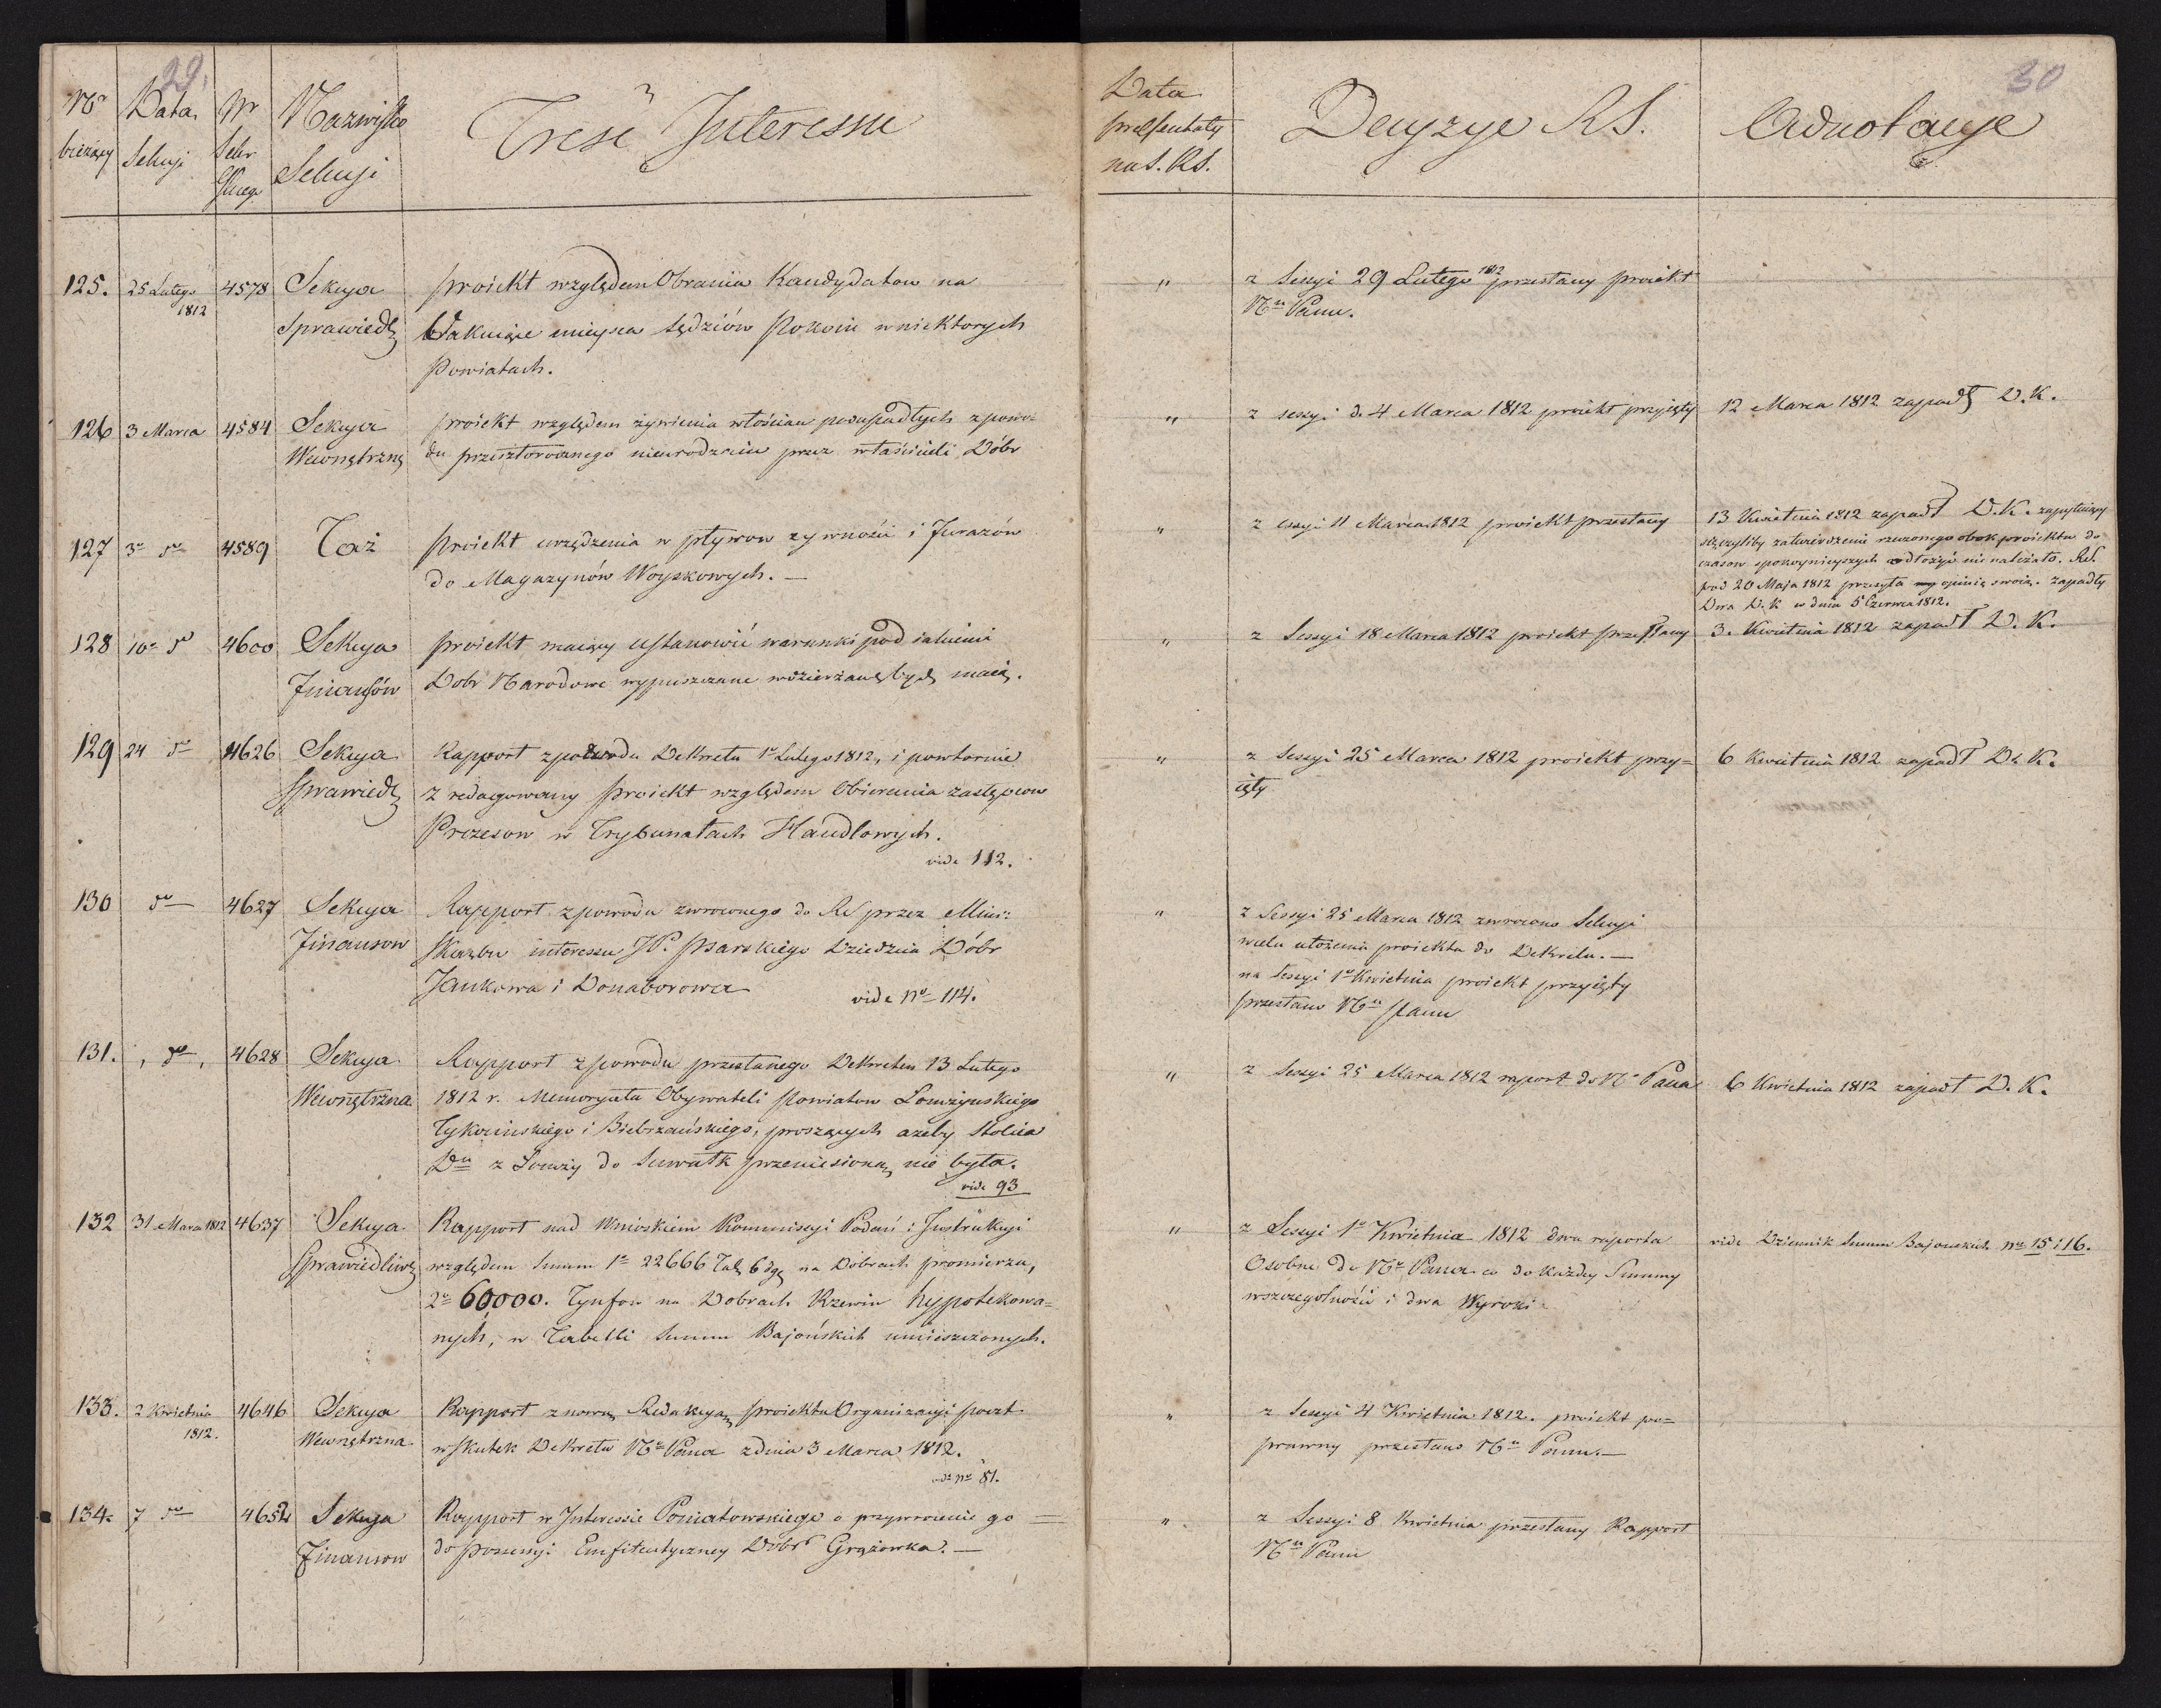 29.
30
Nro bieżący
Data Sekcyi
Nr Sekr
Nazwisko Sekcyi
Treść Interessu
Data praesentaty na S. RS.
Decyzye RS.
Adnotacye
125. 25 Lutego 1812 4578 Sekcya Sprawiedl
proiekt względem Obrania Kandydatow na
wakuiące mieysca Sędziów Pokoiu w niektorych
Powiatach.
" z Sessyi 29 Lutego 1812 przesłany proiekt
Nu Panu.
126 3 Marca 4584 Sekcya Wewnętrzną
proiekt względem żywienia włościan podupadłych z powo=
du przeszłorocznego nieurodzaiu przez właścicieli Dóbr
" z sessyi d. 4 Marca 1812 proiekt przyięty
12 Marca 1812 zapadł D. K.
127 3o do 4589 Taż
proiekt urządzenia wpływow zywności i Furazów
do Magazynów Woyskowych. —
" z sessyi 11 Marca 1812 proiekt przesłany
13 Kwietnia 1812 zapadł D. K. zapytuiący
się czyliby zatwierdzenie rzeczonego obok proiektu do
czasow spokoynieyszych odłożyć nie należało. RS.
pod 20 Maja 1812 przesyła opinią swoią. zapadły
Dwa D. K w dniu 5 Czerwca 1812.
128 10o do 4600 Sekcya Finansów
proiekt maiący ustanowić warunki pod iakiemi
Dobr Narodowe wypuszczane w dzierżawę bydź maią.
" z Sessyi 18 Marca 1812 proiekt przesłany
3. Kwietnia 1812 zapadł D. K.
129 24 do 4626 Sekcya Sprawiedl
Rapport z powodu Dekretu 1o Lutego 1812, i powtornie
zredagowany proiekt względem Obierania zastępcow
Prezesow w Trybunałach Handlowych.
vide 112.
" z Sessyi 25 Marca 1812 proiekt przy=
ięty
6 Kwietnia 1812 zapadł D. K.
130 do 4627 Sekcya Finansow
Rapport z powodu zwroconego do RS przez Min:
Skarbu interessu JP. Psarskiego Dziedzica Dóbr
Jankowa i Donaborowa
vide No 114.
" z Sessyi 25 Marca 1812 zwrocono Sekcyi
w celu ułożenia proiektu do Dekretu. —
na Sessyi 1o Kwietnia proiekt przyięty
przesłano Nu Panu
131. do 4628 Sekcya Wewnętrzna
Rapport z powodu przesłanego Dekretem 13 Lutego
1812 r. Memoryału Obywateli Powiatow Łomżynskiego
Tykocinskiego i Biebrzańskiego, proszących ażeby Stolica
Du z Łomży do Suwałk przeniesioną nie była.
vide 93
" z Sessyi 25 Marca 1812 raport do No Pana
6 Kwietnia 1812 zapadł D. K.
132 31 Marca 1812 4637 Sekcya Sprawiedliwo
Rapport nad Wnioskiem Kommissyi Podań i Instrukcyi
względem Summ 1o 22666 Tal 6 dgr na Dobrach promierza,
2o 60,000. Tynfow na Dobrach Rzewin hypotekowa=
nych, w Tabelli Summ Bajońskich umieszczonych.
" z Sessyi 1o Kwietnia 1812 dwa raporta
Osobne do No Pana co do każdey Summy
w szczegolności i dwa Wyroki
vide Dziennik Summ Bajonskich No 15 i 16.
133. 2 Kwietnia 1812. 4646 Sekcya Wewnętrzna
Rapport z nową Redakcyą proiektu Organizacyi poczt
w skutek Dekretu No Pana z dnia 3 Marca 1812.
vide No 81.
" z Sessyi 4 Kwietnia 1812. proiekt po=
prawny przesłano Nu Panu. —
134. 7 do 4652 Sekcya Finansow
Rapport w Interessie Poniatowskiego o przywrócenie go
do possessyi Emfiteutyczney Dobr Grążowka. —
" z Sessyi 8 Kwietnia przesłany Rapport
Nu Panu